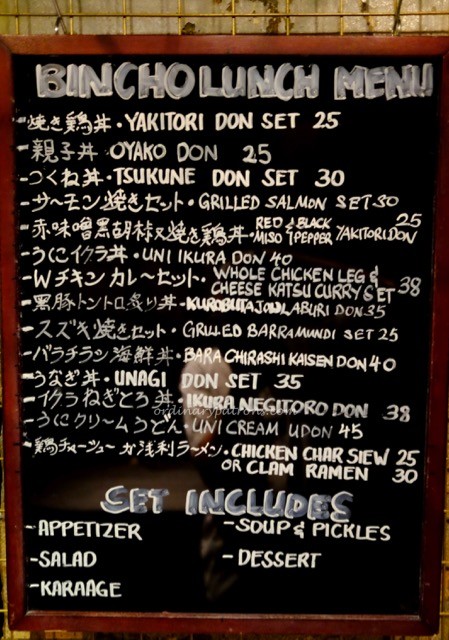 BINCHO LUNCH MENU
-焼き鶏丼・YAKITORI DON SET 25
-親子丼・OYAKO DON 25
-つくね丼・TSUKUNE DON SET 30
-サーモン焼きセット・GRILLED SALMON SET 30
-赤味噌黒胡椒焼き鶏丼・RED & BLACK MISO & PEPPER YAKITORI DON 25
-うにイクラ丼・UNI IKURA DON 40
-Wチキンカレーセット・WHOLE CHICKEN LEG & CHEESE KATSU CURRY SET 38
-黒豚トントロ炙り丼・KUROBUTA JOWL ABURI DON 35
-スズキ焼きセット・GRILLED BARRAMUNDI SET 25
-バラチラシ海鮮丼・BARA CHIRASHI KAISEN DON 40
-うなぎ丼・UNAGI DON SET 35
-イクラねぎとろ丼・IKURA NEGITORO DON 38
ordinarypatrons.com
-うにクリームうどん・UNI CREAM UDON 45
-鶏チャーシューか浅利ラーメン・CHICKEN CHAR SIEW 25
OR CLAM RAMEN 30
SET INCLUDES
-APPETIZER
-SOUP & PICKLES
-SALAD
-DESSERT
-KARAAGE